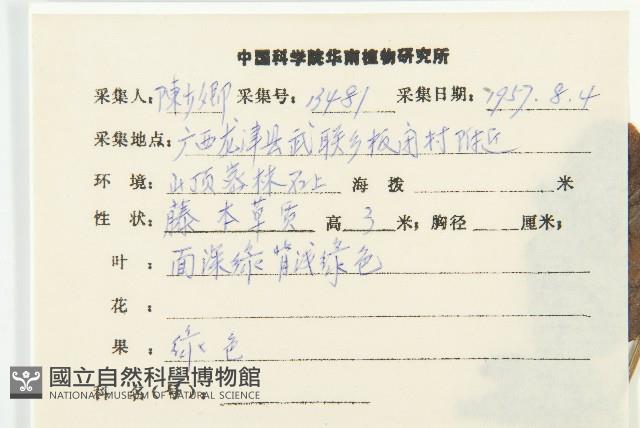 中国科学院华南植物研究所
采集人: 陳少卿 采集号: 13481 采集日期: 1957.8.4
采集地点: 广西龙津县武联乡板闭村附近
环 境: 山顶密林石上 海 拨 米
性 状: 藤本草质 高 3 米; 胸径 厘米;
叶: 面深綠背浅綠色
花:
果: 綠色
國立自然科學博物館
NATIONAL MUSEUM OF NATURAL SCIENCE
科 名(号)